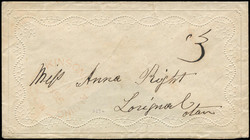 3
Miss Anna Wright
Lorignal